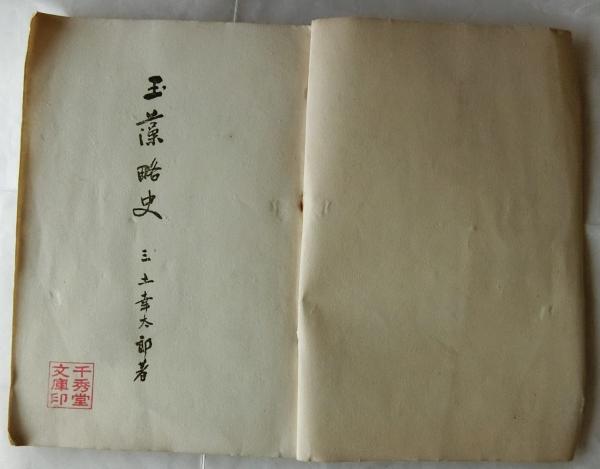 玉藻略史
三土幸太郎著
千秀堂
文庫印